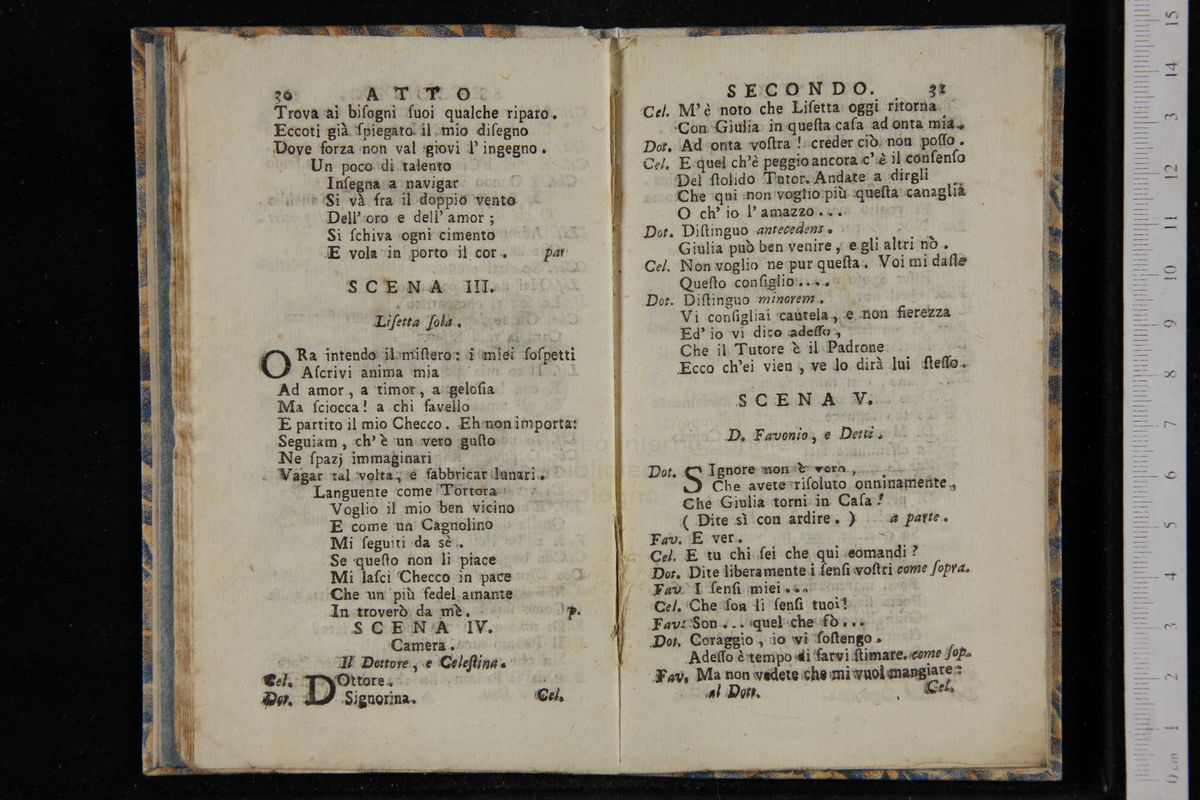 30 ATTO
Trova ai biſogni ſuoi qualche riparo.
Eccoti già ſpiegato il mio diſegno
Dove forza non val giovi l'ingegno.
Un poco di talento
Inſegna a navigar
Si và fra il doppio vento
Dell'oro e dell'amor;
Si ſchiva ogni cimento
E vola in porto il cor. par
SCENA III.
Liſetta ſola.
ORa intendo il miſtero: i miei ſoſpetti
Aſcrivi anima mia
Ad amor, a timor, a geloſia
Ma ſciocca! a chi favello
E partito il mio Checco. Eh non importa:
Seguiam, ch'è un vero guſto
Ne ſpazj immaginari
Vagar tal volta, e fabbricar lunari.
Languente come Tortora
Voglio il mio ben vicino
E come un Cagnolino
Mi ſeguiti da sè.
Se queſto non li piace
Mi laſci Checco in pace
Che un più fedel amante
In troverò da mè. p.
SCENA IV.
Camera.
Il Dottore, e Celeſtina.
Cel. DOttore.
Dot. Signorina. Cel.
SECONDO. 31
Cel. M'è noto che Liſetta oggi ritorna
Con Giulia in queſta caſa ad onta mia.
Dot. Ad onta voſtra! creder ciò non poſſo.
Cel. E quel ch'è peggio ancora c'è il conſenſo
Del ſtolido Tutor. Andate a dirgli
Che qui non voglio più queſta canaglia
O ch'io l'amazzo...
Dot. Diſtinguo antecedens.
Giulia può ben venire, e gli altri nò.
Cel. Non voglio ne pur queſta. Voi mi daſte
Queſto conſiglio....
Dot. Diſtinguo minorem.
Vi conſigliai cautela, e non fierezza
Ed'io vi dico adeſſo,
Che il Tutore è il Padrone
Ecco ch'ei vien, ve lo dirà lui ſteſſo.
SCENA V.
D. Favonio, e Detti.
Dot. SIgnore non è vero,
Che avete riſoluto onninamente,
Che Giulia torni in Caſa!
(Dite sì con ardire.) a parte.
Fav. E ver.
Cel. E tu chi ſei che qui comandi?
Dot. Dite liberamente i ſenſi voſtri come ſopra.
Fav. I ſenſi miei...
Cel. Che ſon li ſenſi tuoi!
Fav: Son... quel che ſò...
Dot. Coraggio, io vi ſoſtengo.
Adeſſo è tempo di farvi ſtimare. come ſop.
Fav. Ma non vedete che mi vuol mangiare:
al Dott. Cel.
0 cm 1 2 3 4 5 6 7 8 9 10 11 12 13 14 15